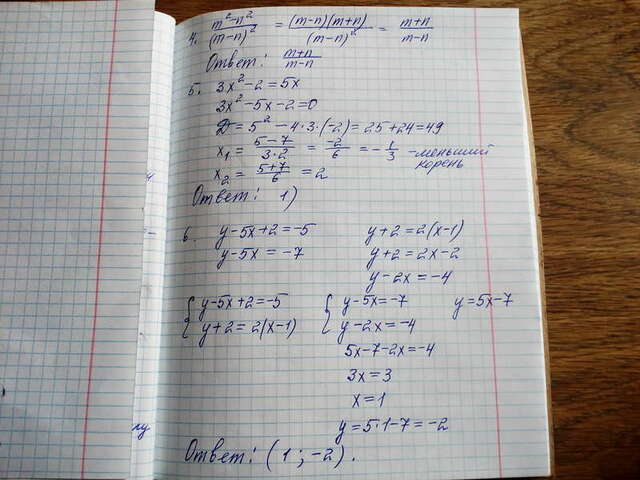 4. (m²-n²)/(m-n)² = (m-n)(m+n)/(m-n)² = (m+n)/(m-n)
Ответ: (m+n)/(m-n)
5. 3x²-2=5x
3x²-5x-2=0
D=5²-4·3·(-2)=25+24=49
x₁ = (5-7)/(3·2) = -2/6 = -1/3 -меньший корень
x₂ = (5+7)/6 = 2
Ответ: 1)
6. y-5x+2=-5 y+2=2(x-1)
y-5x=-7 y+2=2x-2
y-2x=-4
{ y-5x+2=-5 { y-5x=-7 y=5x-7
y+2=2(x-1) y-2x=-4
5x-7-2x=-4
3x=3
x=1
y=5·1-7=-2
Ответ: (1; -2).